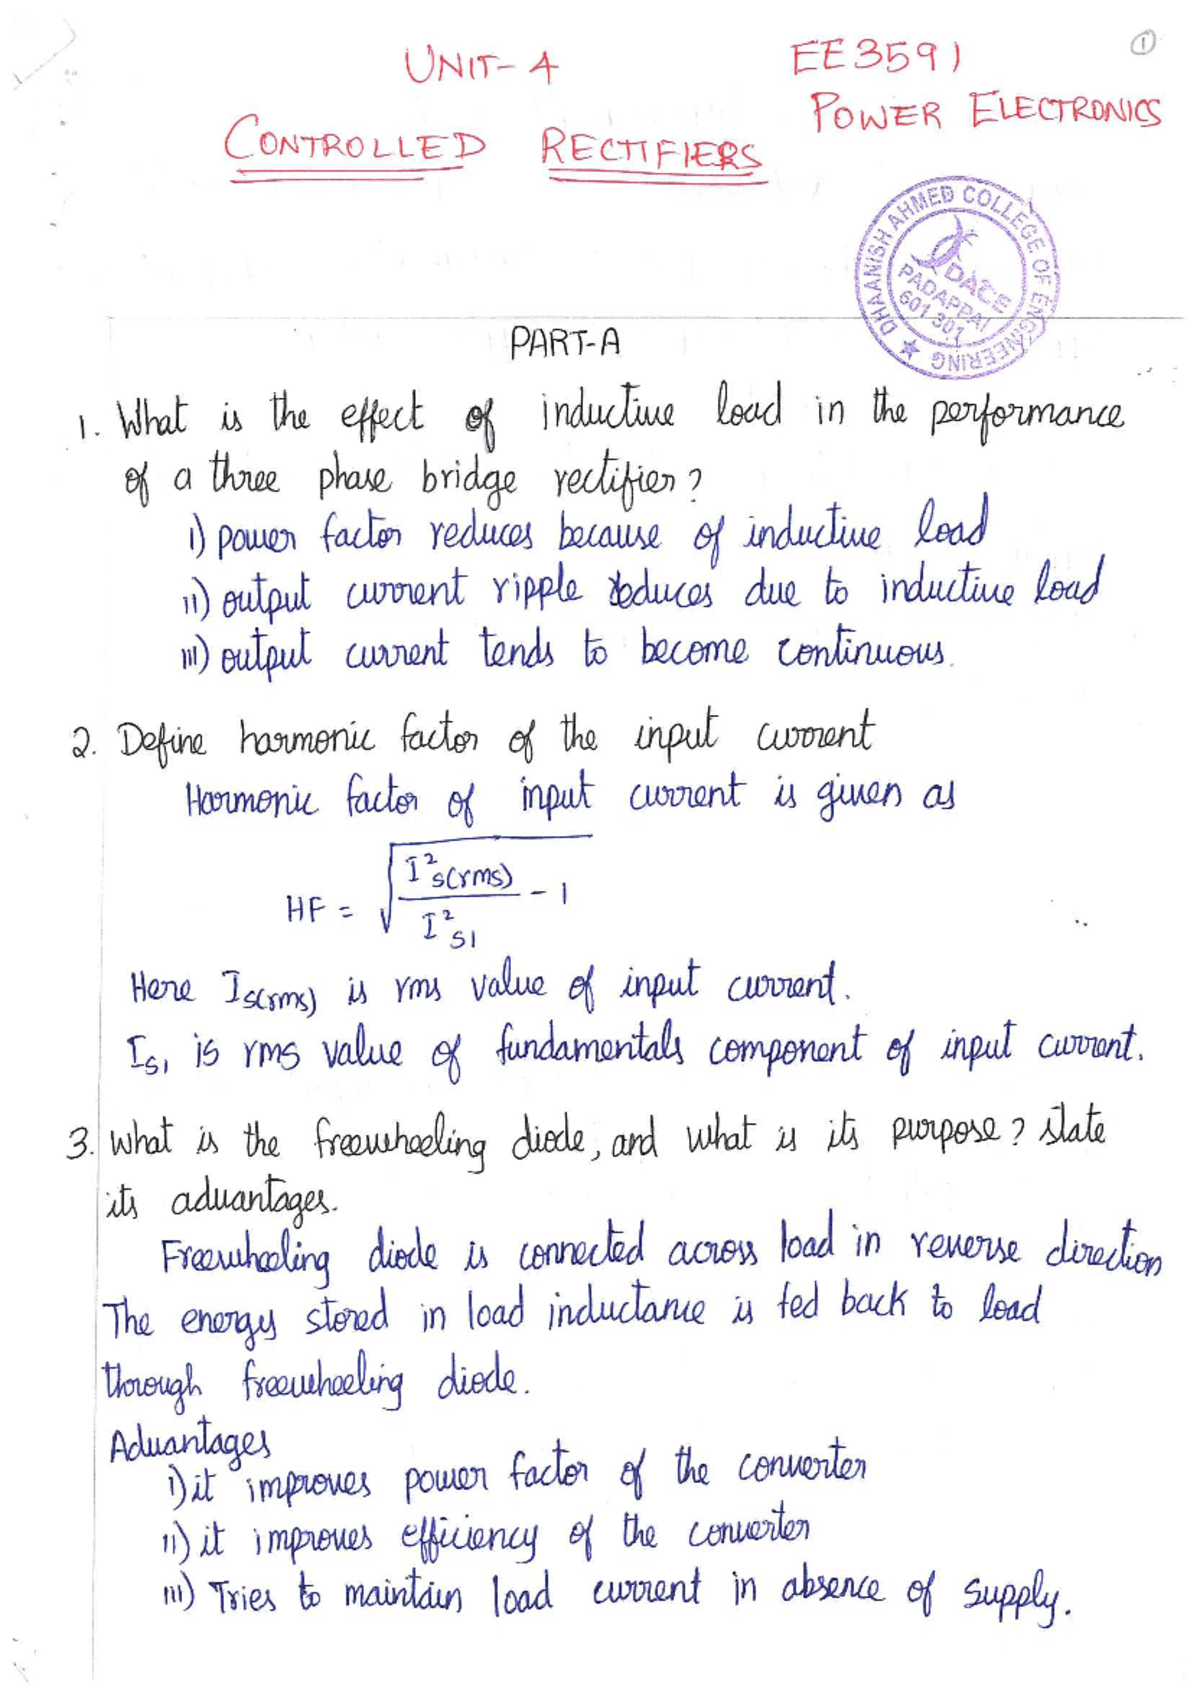 ①
UNIT-4
EE3591
POWER ELECTRONICS
CONTROLLED RECTIFIERS
DHAANISH AHMED COLLEGE OF ENGINEERING ★
DACE
PADAPPAI
601 301
PART-A
1. What is the effect of inductive load in the performance
of a three phase bridge rectifier?
i) power factor reduces because of inductive load
ii) output current ripple reduces due to inductive load
iii) output current tends to become continuous.
2. Define harmonic factor of the input current
Harmonic factor of input current is given as
HF = √(I²s(rms) / I²s1 - 1)
Here Is(rms) is rms value of input current.
Is1 is rms value of fundamentals component of input current.
3. What is the freewheeling diode, and what is its purpose? State
its advantages.
Freewheeling diode is connected across load in reverse direction
The energy stored in load inductance is fed back to load
through freewheeling diode.
Advantages
i) it improves power factor of the converter
ii) it improves efficiency of the converter
iii) Tries to maintain load current in absence of supply.